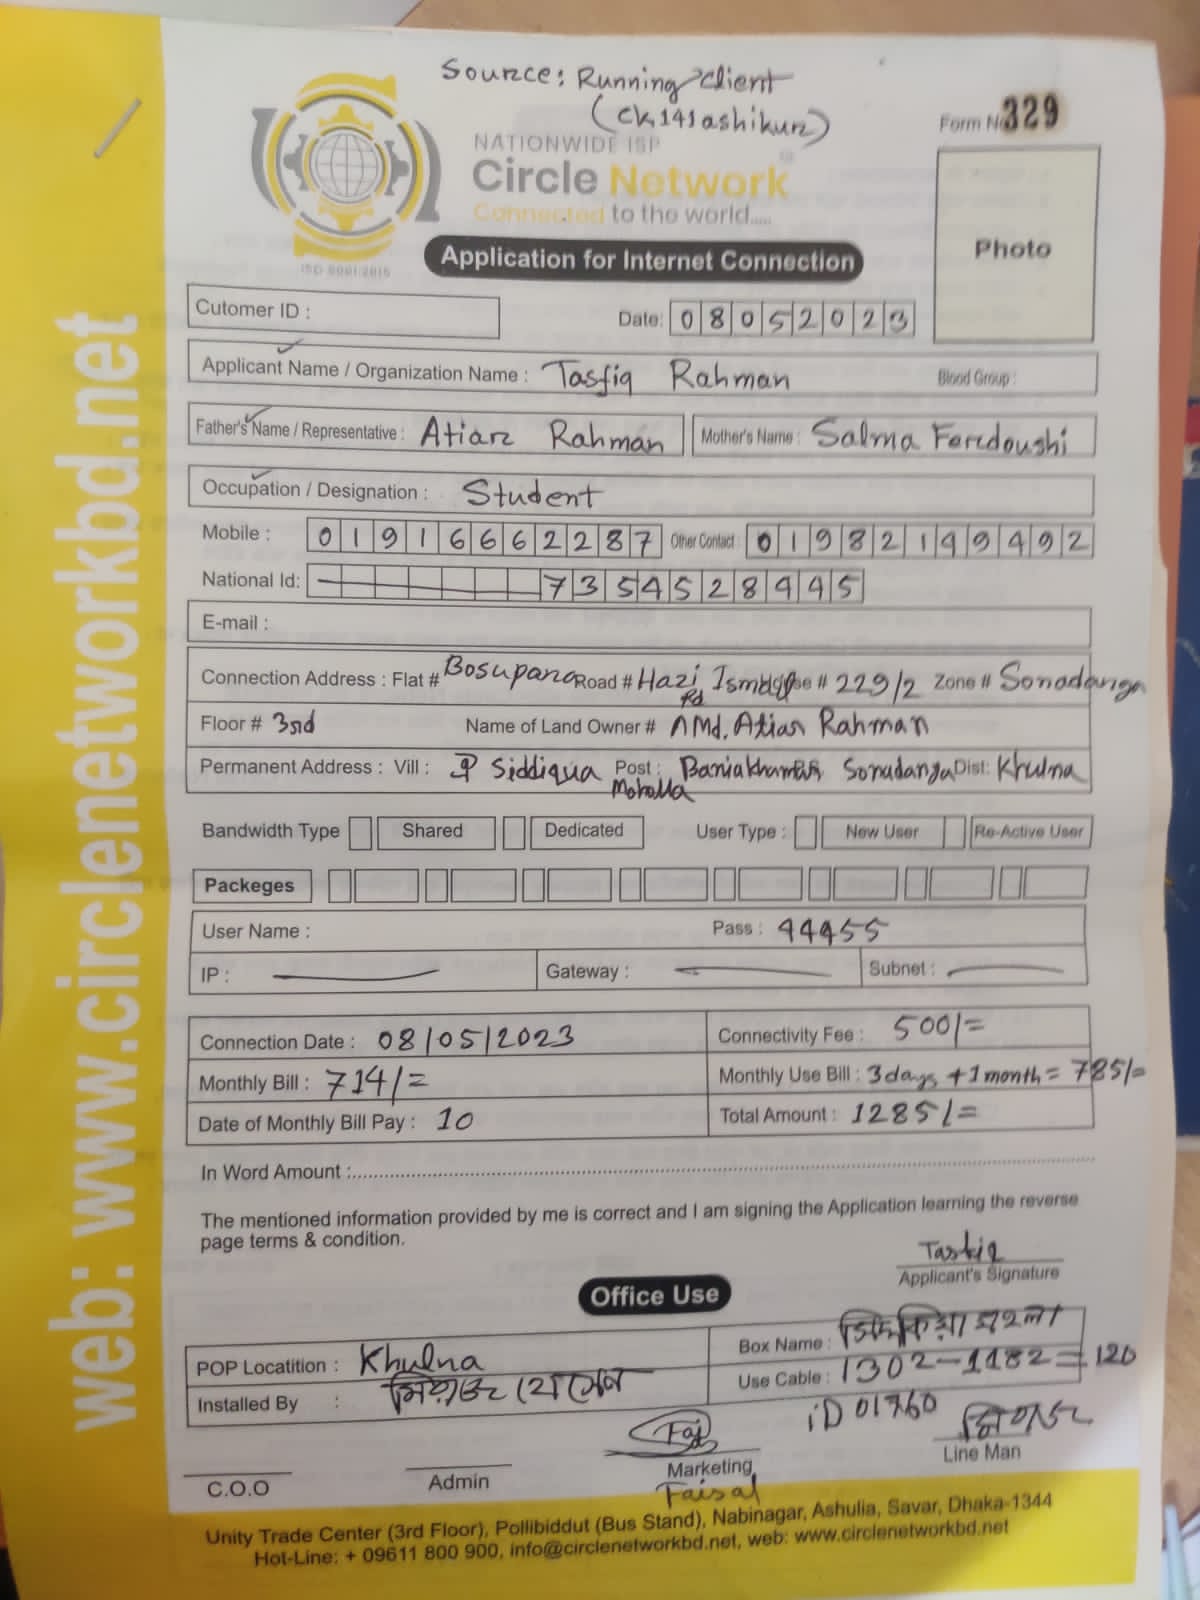 Source: Running client
(ck141ashikur)
Form No 329
NATIONWIDE ISP
Circle Network
Connected to the world.....
ISO 9001:2015
Photo
Application for Internet Connection
Cutomer ID :
Date: 08052023
Applicant Name / Organization Name : Tasfiq Rahman Blood Group :
Father's Name / Representative : Atiar Rahman Mother's Name : Salma Ferdoushi
Occupation / Designation : Student
Mobile : 01916662287 Other Contact : 01982199492
National Id: 7354528945
E-mail :
Connection Address : Flat # Bosupara Road # Hazi Ismail Rd # 229/2 Zone # Sonadanga
Floor # 3rd Name of Land Owner # Md. Atiar Rahman
Permanent Address : Vill : Siddiqua Moholla Post : Baniakhamar Sonadanga Dist: Khulna
Bandwidth Type Shared Dedicated User Type : New User Re-Active User
Packeges
User Name : Pass : 44455
IP : Gateway : Subnet :
Connection Date : 08/05/2023 Connectivity Fee : 500/=
Monthly Bill : 714/= Monthly Use Bill : 3 days + 1 month = 785/=
Date of Monthly Bill Pay : 10 Total Amount : 1285/=
In Word Amount :
The mentioned information provided by me is correct and I am signing the Application learning the reverse
page terms & condition.
Tasfiq
Applicant's Signature
Office Use
POP Locatition : Khulna Box Name : সিদ্দিকিয়া মহল্লা
Installed By : হোসেন Use Cable : 1302-1182=120
iD 01760
C.O.O Admin Marketing Line Man
Faisal
Unity Trade Center (3rd Floor), Pollibiddut (Bus Stand), Nabinagar, Ashulia, Savar, Dhaka-1344
Hot-Line: + 09611 800 900, info@circlenetworkbd.net, web: www.circlenetworkbd.net
web: www.circlenetworkbd.net